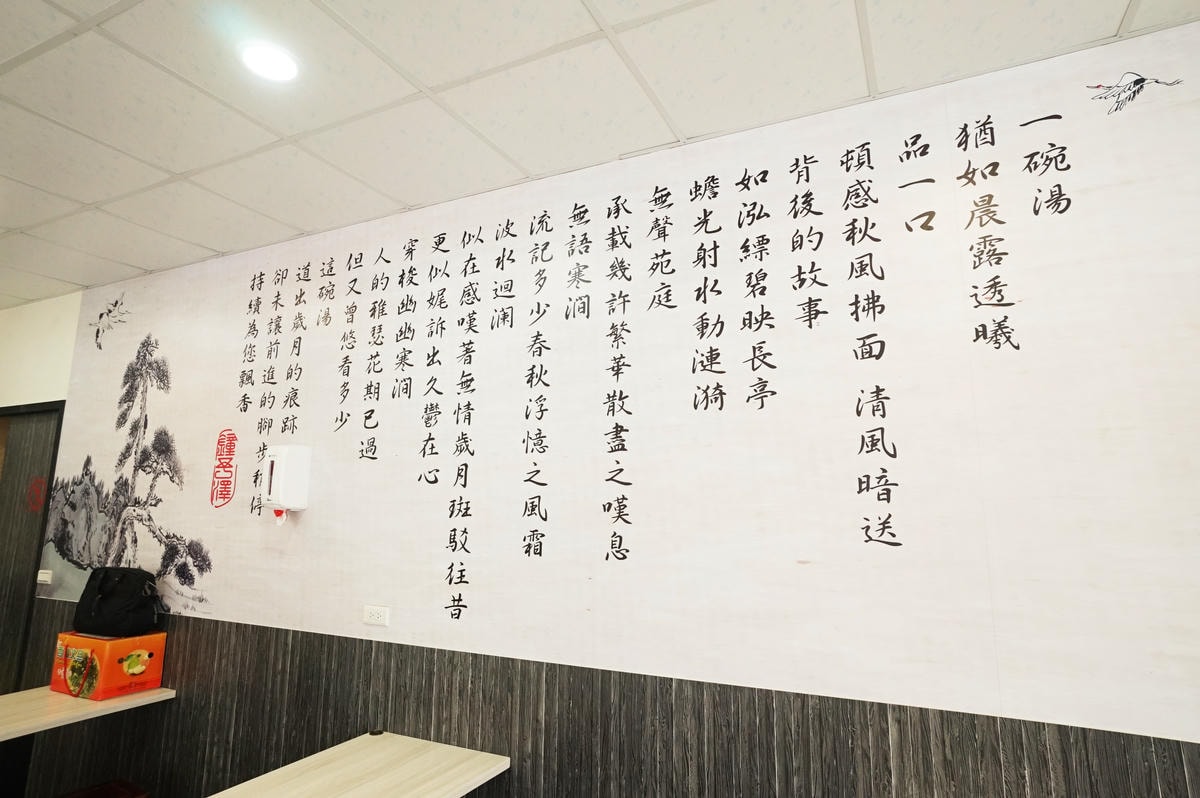 一碗湯
猶如晨露透曦
品一口
頓感秋風拂面 清風暗送
背後的故事
如泓縹碧映長亭
蟾光射水動漣漪
無聲苑庭
承載幾許繁華散盡之嘆息
無語寒澗
流記多少春秋浮憶之風霜
波水迴瀾
似在感嘆著無情歲月斑駁往昔
更似娓訴出久鬱在心
穿梭幽幽寒澗
人的雅瑟花期已過
但又曾悠看多少
這碗湯
道出歲月的痕跡
卻未讓前進的腳步稍停
持續為您飄香